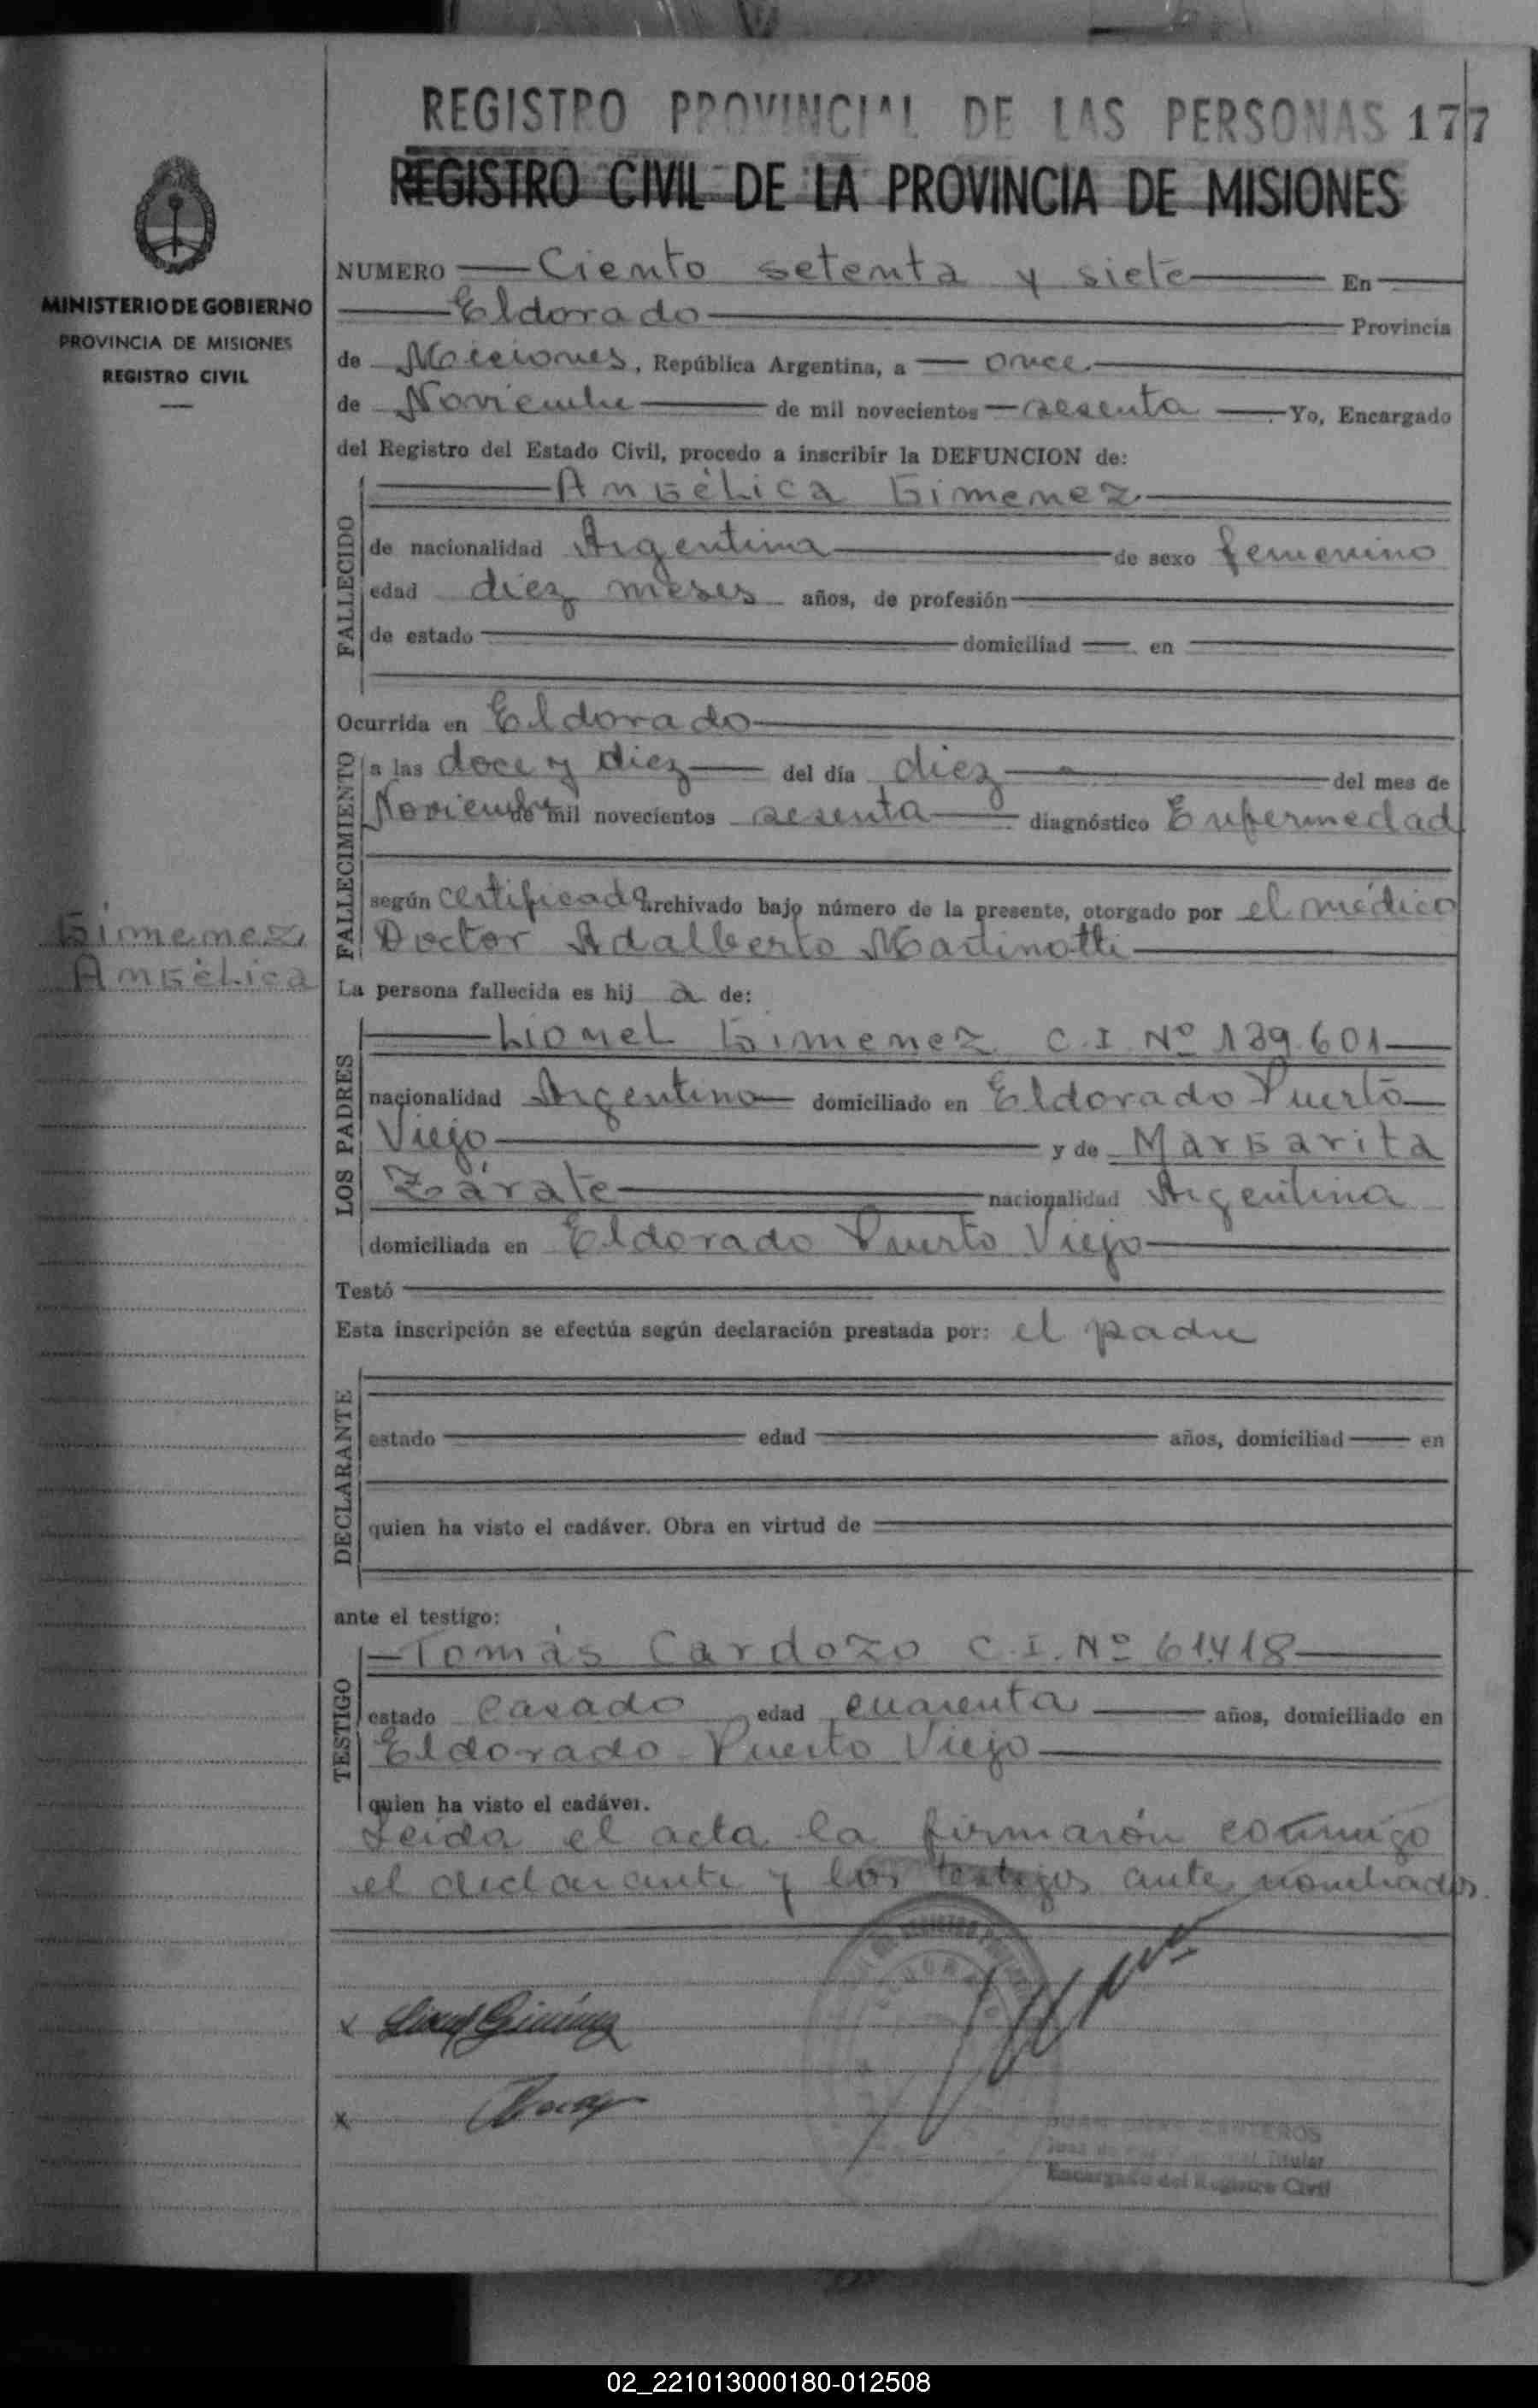 REGISTRO PROVINCIAL DE LAS PERSONAS 177
REGISTRO CIVIL DE LA PROVINCIA DE MISIONES
MINISTERIO DE GOBIERNO
PROVINCIA DE MISIONES
REGISTRO CIVIL
NUMERO Ciento setenta y siete En
Eldorado Provincia
de Misiones, República Argentina, a once
de Noviembre de mil novecientos sesenta Yo, Encargado
del Registro del Estado Civil, procedo a inscribir la DEFUNCION de:
FALLECIDO
Angélica Gimenez
de nacionalidad Argentina de sexo femenino
edad diez meses años, de profesión
de estado domiciliad en
Ocurrida en Eldorado
FALLECIMIENTO
a las doce y diez del día diez del mes de
Noviembre de mil novecientos sesenta diagnóstico Enfermedad
según certificado archivado bajo número de la presente, otorgado por el médico
Doctor Adalberto Martinotti
Gimenez
Angélica
La persona fallecida es hij a de:
LOS PADRES
Lionel Gimenez C.I. Nº 139.601
nacionalidad Argentino domiciliado en Eldorado Puerto
Viejo y de Margarita
Zárate nacionalidad Argentina
domiciliada en Eldorado Puerto Viejo
Testó
Esta inscripción se efectúa según declaración prestada por: el padre
DECLARANTE
estado edad años, domiciliad en
quien ha visto el cadáver. Obra en virtud de
ante el testigo:
TESTIGO
Tomás Cardozo C.I. Nº 61418
estado casado edad cuarenta años, domiciliado en
Eldorado Puerto Viejo
quien ha visto el cadáver.
Leída el acta la firmarón conmigo
el declarante y los testigos ante nombrados.
x Lionel Gimenez
x
Encargado del Registro Civil
02_221013000180-012508